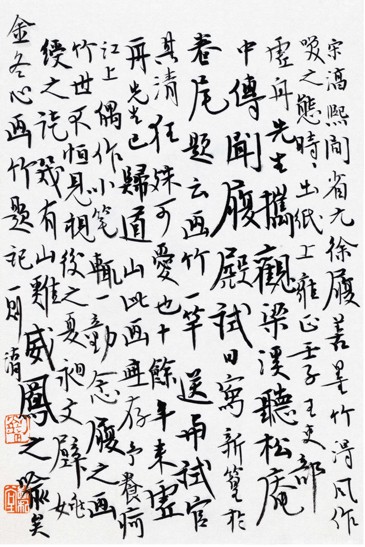 宋淳熙間省元徐履善墨竹得風作
咲之態時時出紙上雍正壬子王吏部
虛舟先生攜觀梁溪聽松庵
中傳聞履殿試日寫新篁於
卷尾題云画竹一竿送与試官
其清狂殊可愛也十餘年來虛
舟先生已歸道山此画無存予養疴
江上偶作小笔輒一動念履之画
竹世不恒見相後之夏昶文璧姚
綬之流幾有山雞威鳳之喻矣
金冬心画竹題記一則